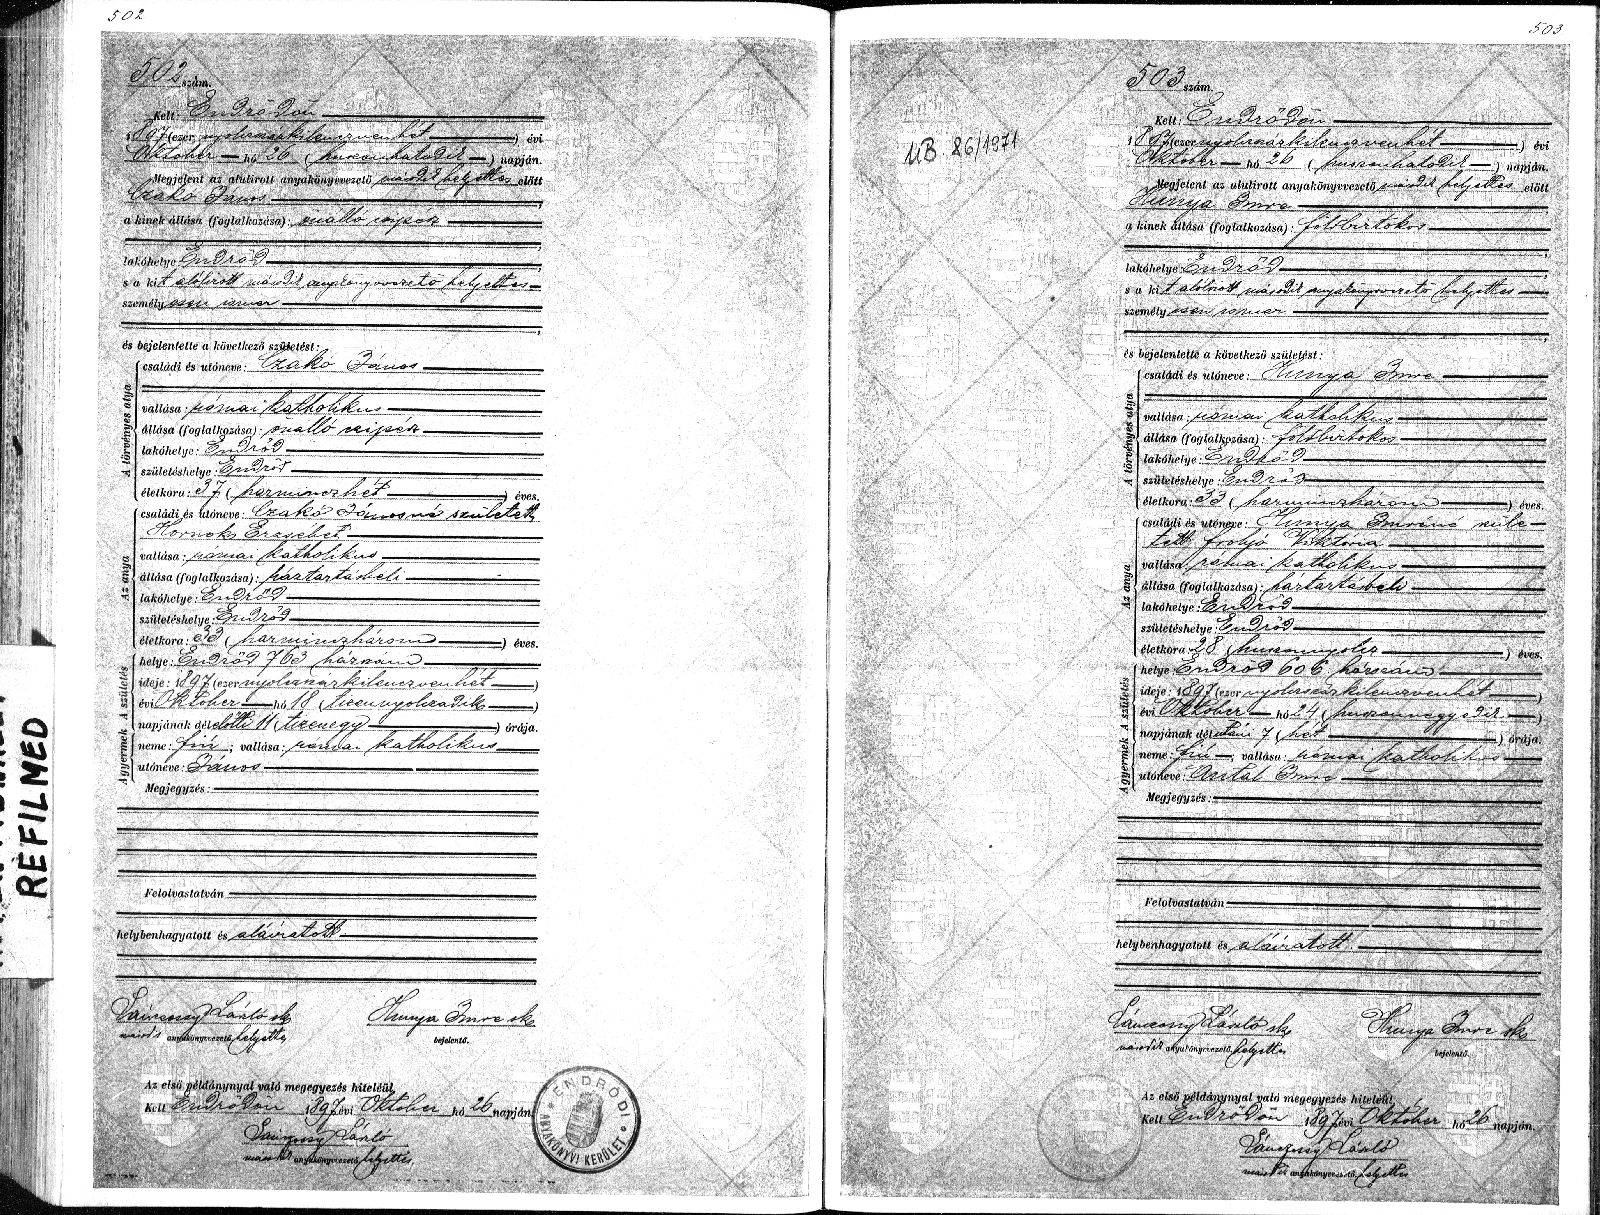 502
502 szám.
Kelt: Endrődön
1897 (ezer nyolczszázkilenczvenhét) évi
Október hó 26 (huszonhatodik) napján.
Megjelent az alulirott anyakönyvvezető második helyettes előtt
Czakó János
a kinek állása (foglalkozása): önálló czipész
lakóhelye Endrőd
s a kit alólirott második anyakönyvvezető helyettes
személyesen ismer
és bejelentette a következő születést:
A törvényes atya
családi és utóneve: Czakó János
vallása: római katholikus
állása (foglalkozása): önálló czipész
lakóhelye: Endrőd
születéshelye: Endrőd
életkora: 37 (harminczhét) éves.
Az anya
családi és utóneve: Czakó Jánosné született
Hornok Erzsébet
vallása: római katholikus
állása (foglalkozása): háztartásbeli
lakóhelye: Endrőd
születéshelye: Endrőd
életkora: 33 (harminczhárom) éves.
A gyermek A születés
helye: Endrőd 763 házszám
ideje: 1897 (ezer nyolczszázkilenczvenhét)
évi Október hó 18 (tizennyolczadik)
napjának délelőtti 11 (tizenegy) órája.
neme: fiú; vallása: római katholikus
utóneve: János
Megjegyzés:
Felolvastatván
helybenhagyatott és aláiratott
László sk Hunya Imre sk
második anyakönyvvezető helyettes bejelentő.
Az első példánynyal való megegyezés hiteléül,
Kelt Endrődön 1897 évi Október hó 26 napján.
László
második anyakönyvvezető helyettes
ENDRŐDI ANYAKÖNYVI KERÜLET
REFILMED
503
503 szám.
UB 86/1971
Kelt: Endrődön
1897 (ezer nyolczszázkilenczvenhét) évi
Október hó 26 (huszonhatodik) napján.
Megjelent az alulirott anyakönyvvezető második helyettes előtt
Hunya Imre
a kinek állása (foglalkozása): földbirtokos
lakóhelye: Endrőd
s a kit alólirott második anyakönyvvezető helyettes
személyesen ismer
és bejelentette a következő születést:
A törvényes atya
családi és utóneve: Hunya Imre
vallása: római katholikus
állása (foglalkozása): földbirtokos
lakóhelye: Endrőd
születéshelye: Endrőd
életkora: 33 (harminczhárom) éves.
Az anya
családi és utóneve: Hunya Imréné szüle-
tett Viktória
vallása: római katholikus
állása (foglalkozása): háztartásbeli
lakóhelye: Endrőd
születéshelye: Endrőd
életkora: 28 (huszonnyolcz) éves.
A gyermek A születés
helye Endrőd 606 házszám
ideje: 1897 (ezer nyolczszázkilenczvenhét)
évi Október hó 24 (huszonnegyedik)
napjának délutáni 7 (hét) órája.
neme: fiú; vallása: római katholikus
utóneve: Antal Imre
Megjegyzés:
Felolvastatván
helybenhagyatott és aláiratott
László sk Hunya Imre sk
második anyakönyvvezető, helyettes bejelentő.
Az első példánynyal való megegyezés hiteléül,
Kelt Endrődön 1897 évi Október hó 26 napján.
László
második anyakönyvvezető, helyettes